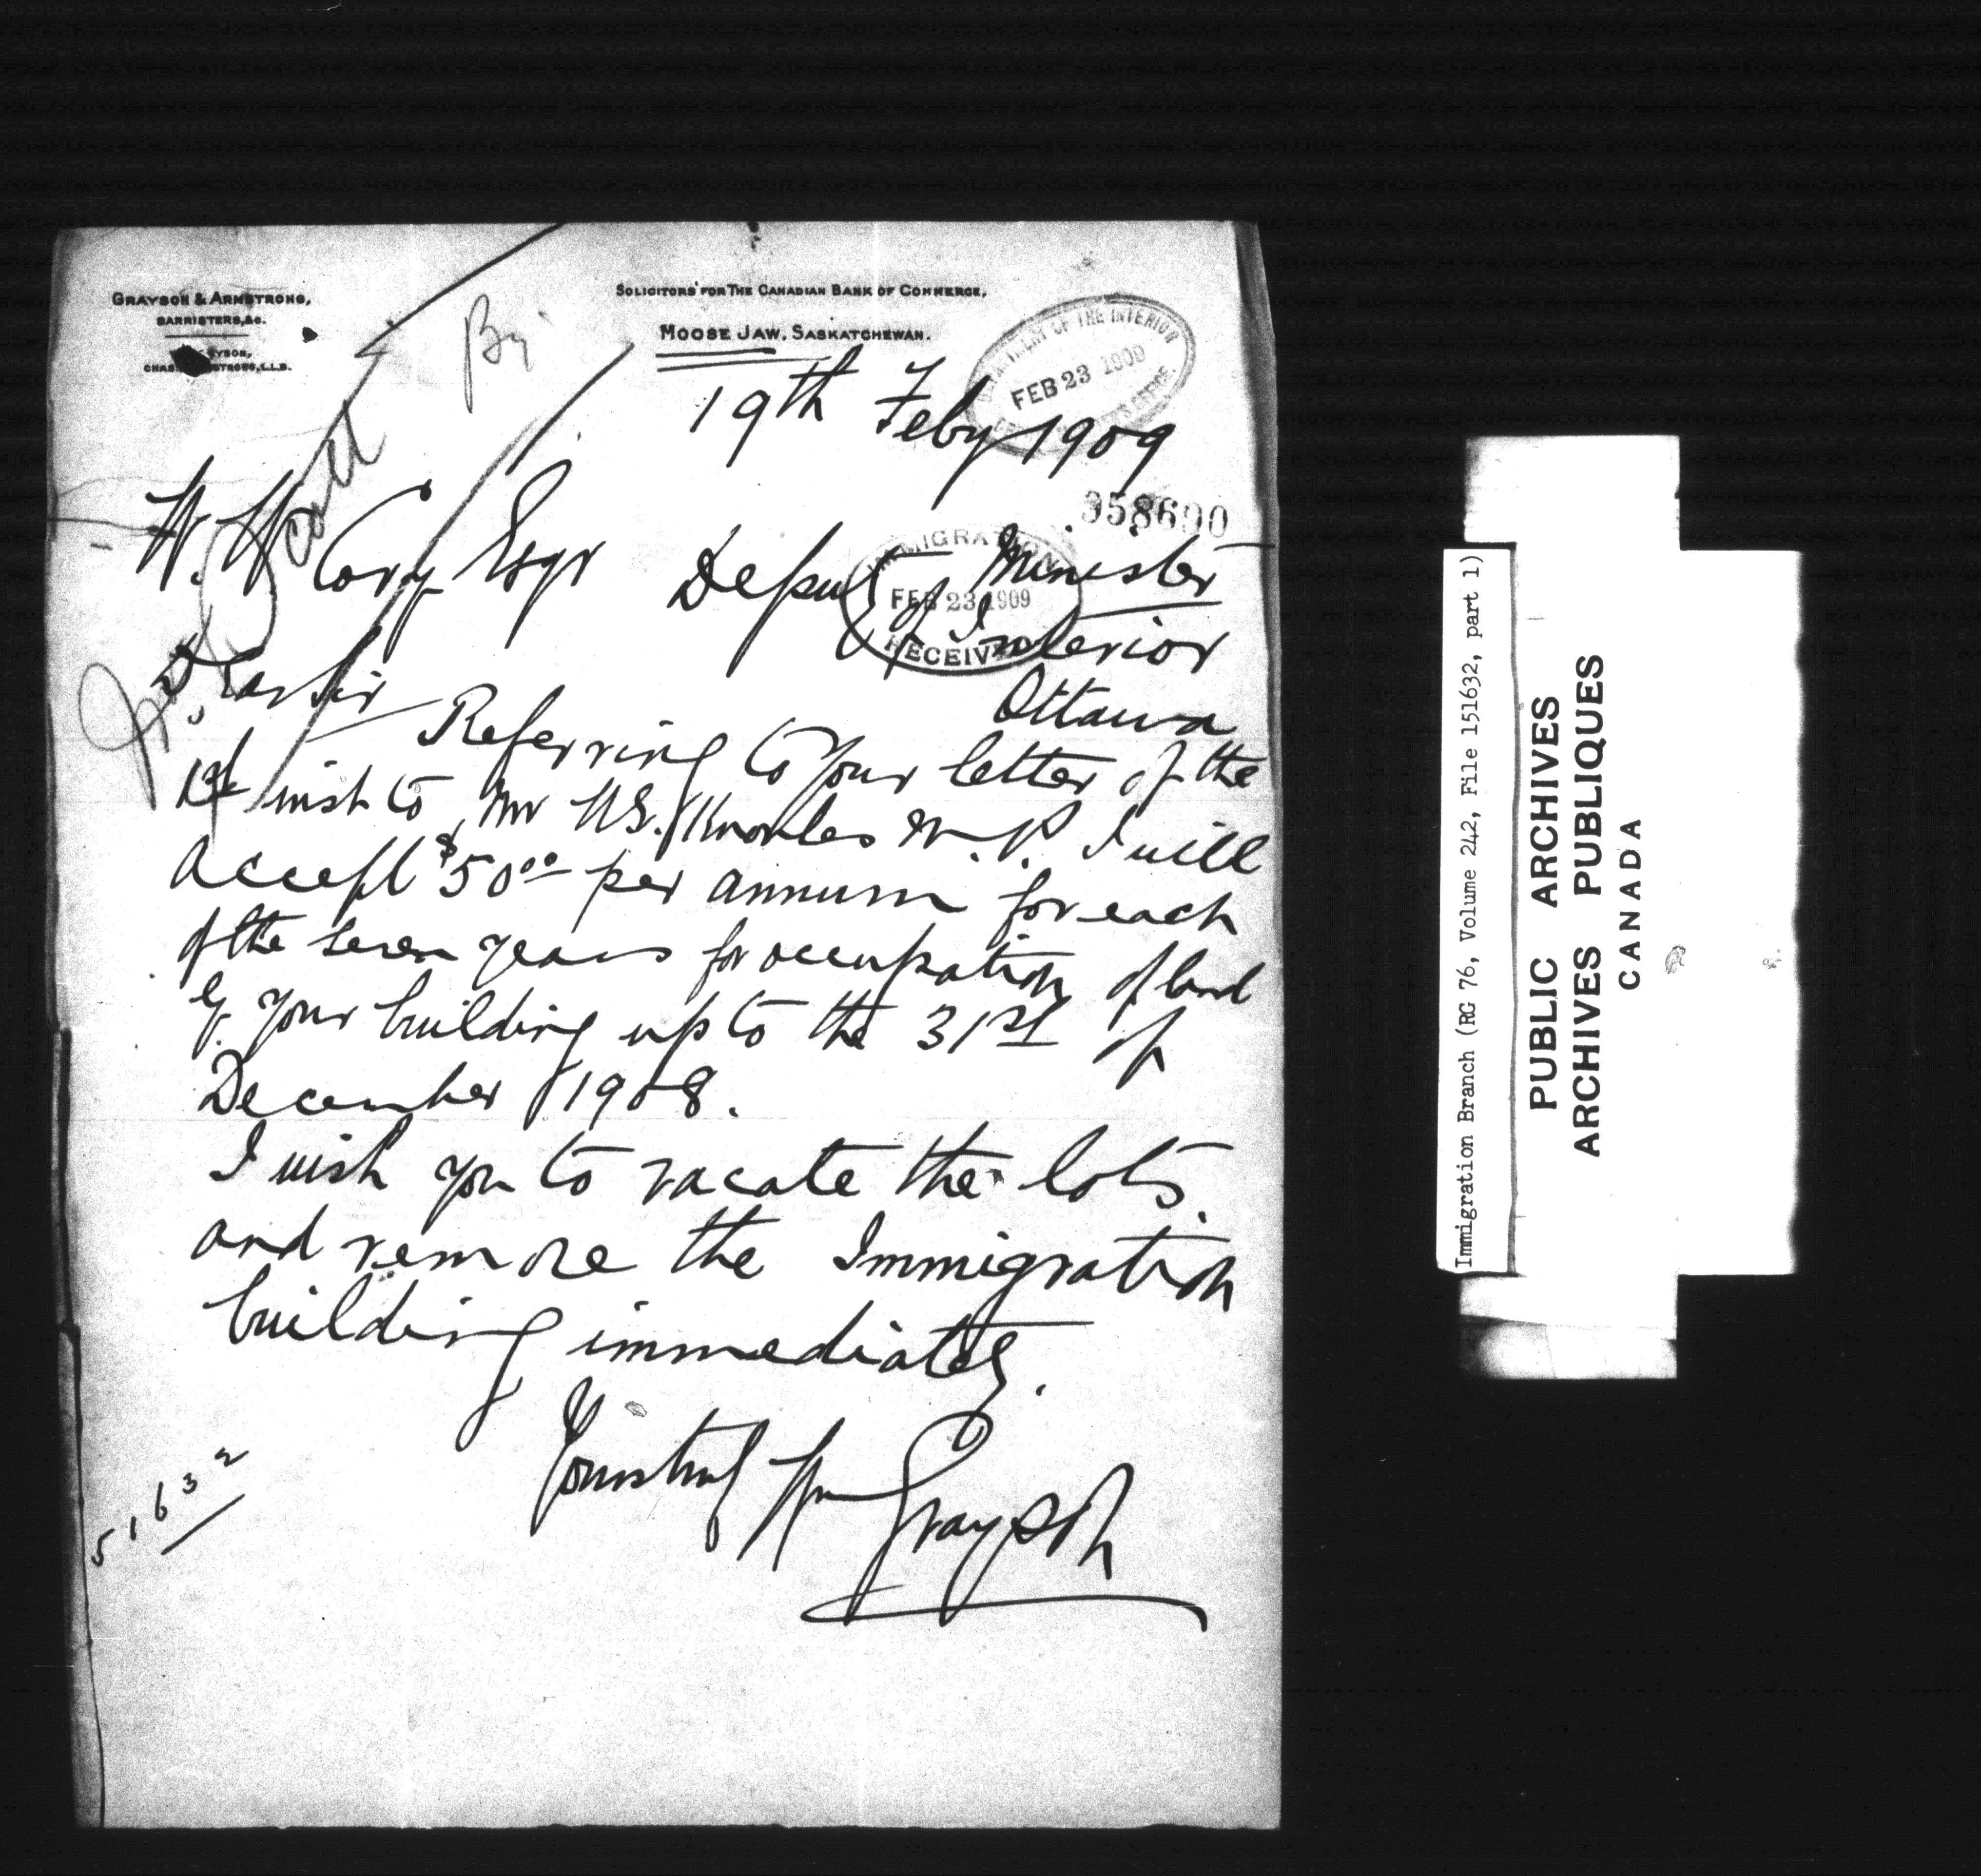 GRAYSON & ARMSTRONG,
BARRISTERS, &C.
SOLICITORS FOR THE CANADIAN BANK OF COMMERCE,
MOOSE JAW, SASKATCHEWAN.
DEPARTMENT OF THE INTERIOR
FEB 23 1909
By
19th Feby 1909
358690
W. W. Cory Esqr Deputy Minister
of Interior
Ottawa
IMMIGRATION
FEB 23 1909
RECEIVED
Dear Sir
Referring to your letter of the
1st inst to Mr W.E. Knowles M.P. I will
accept $50.00 per annum for each
of the seven years for occupation of land
by your building up to the 31st of
December 1908.
I wish you to vacate the lots
and remove the Immigration
building immediately.
Yours truly Wm Grayson
51632
Immigration Branch (RG 76, Volume 242, File 151632, part 1)
PUBLIC ARCHIVES
ARCHIVES PUBLIQUES
CANADA